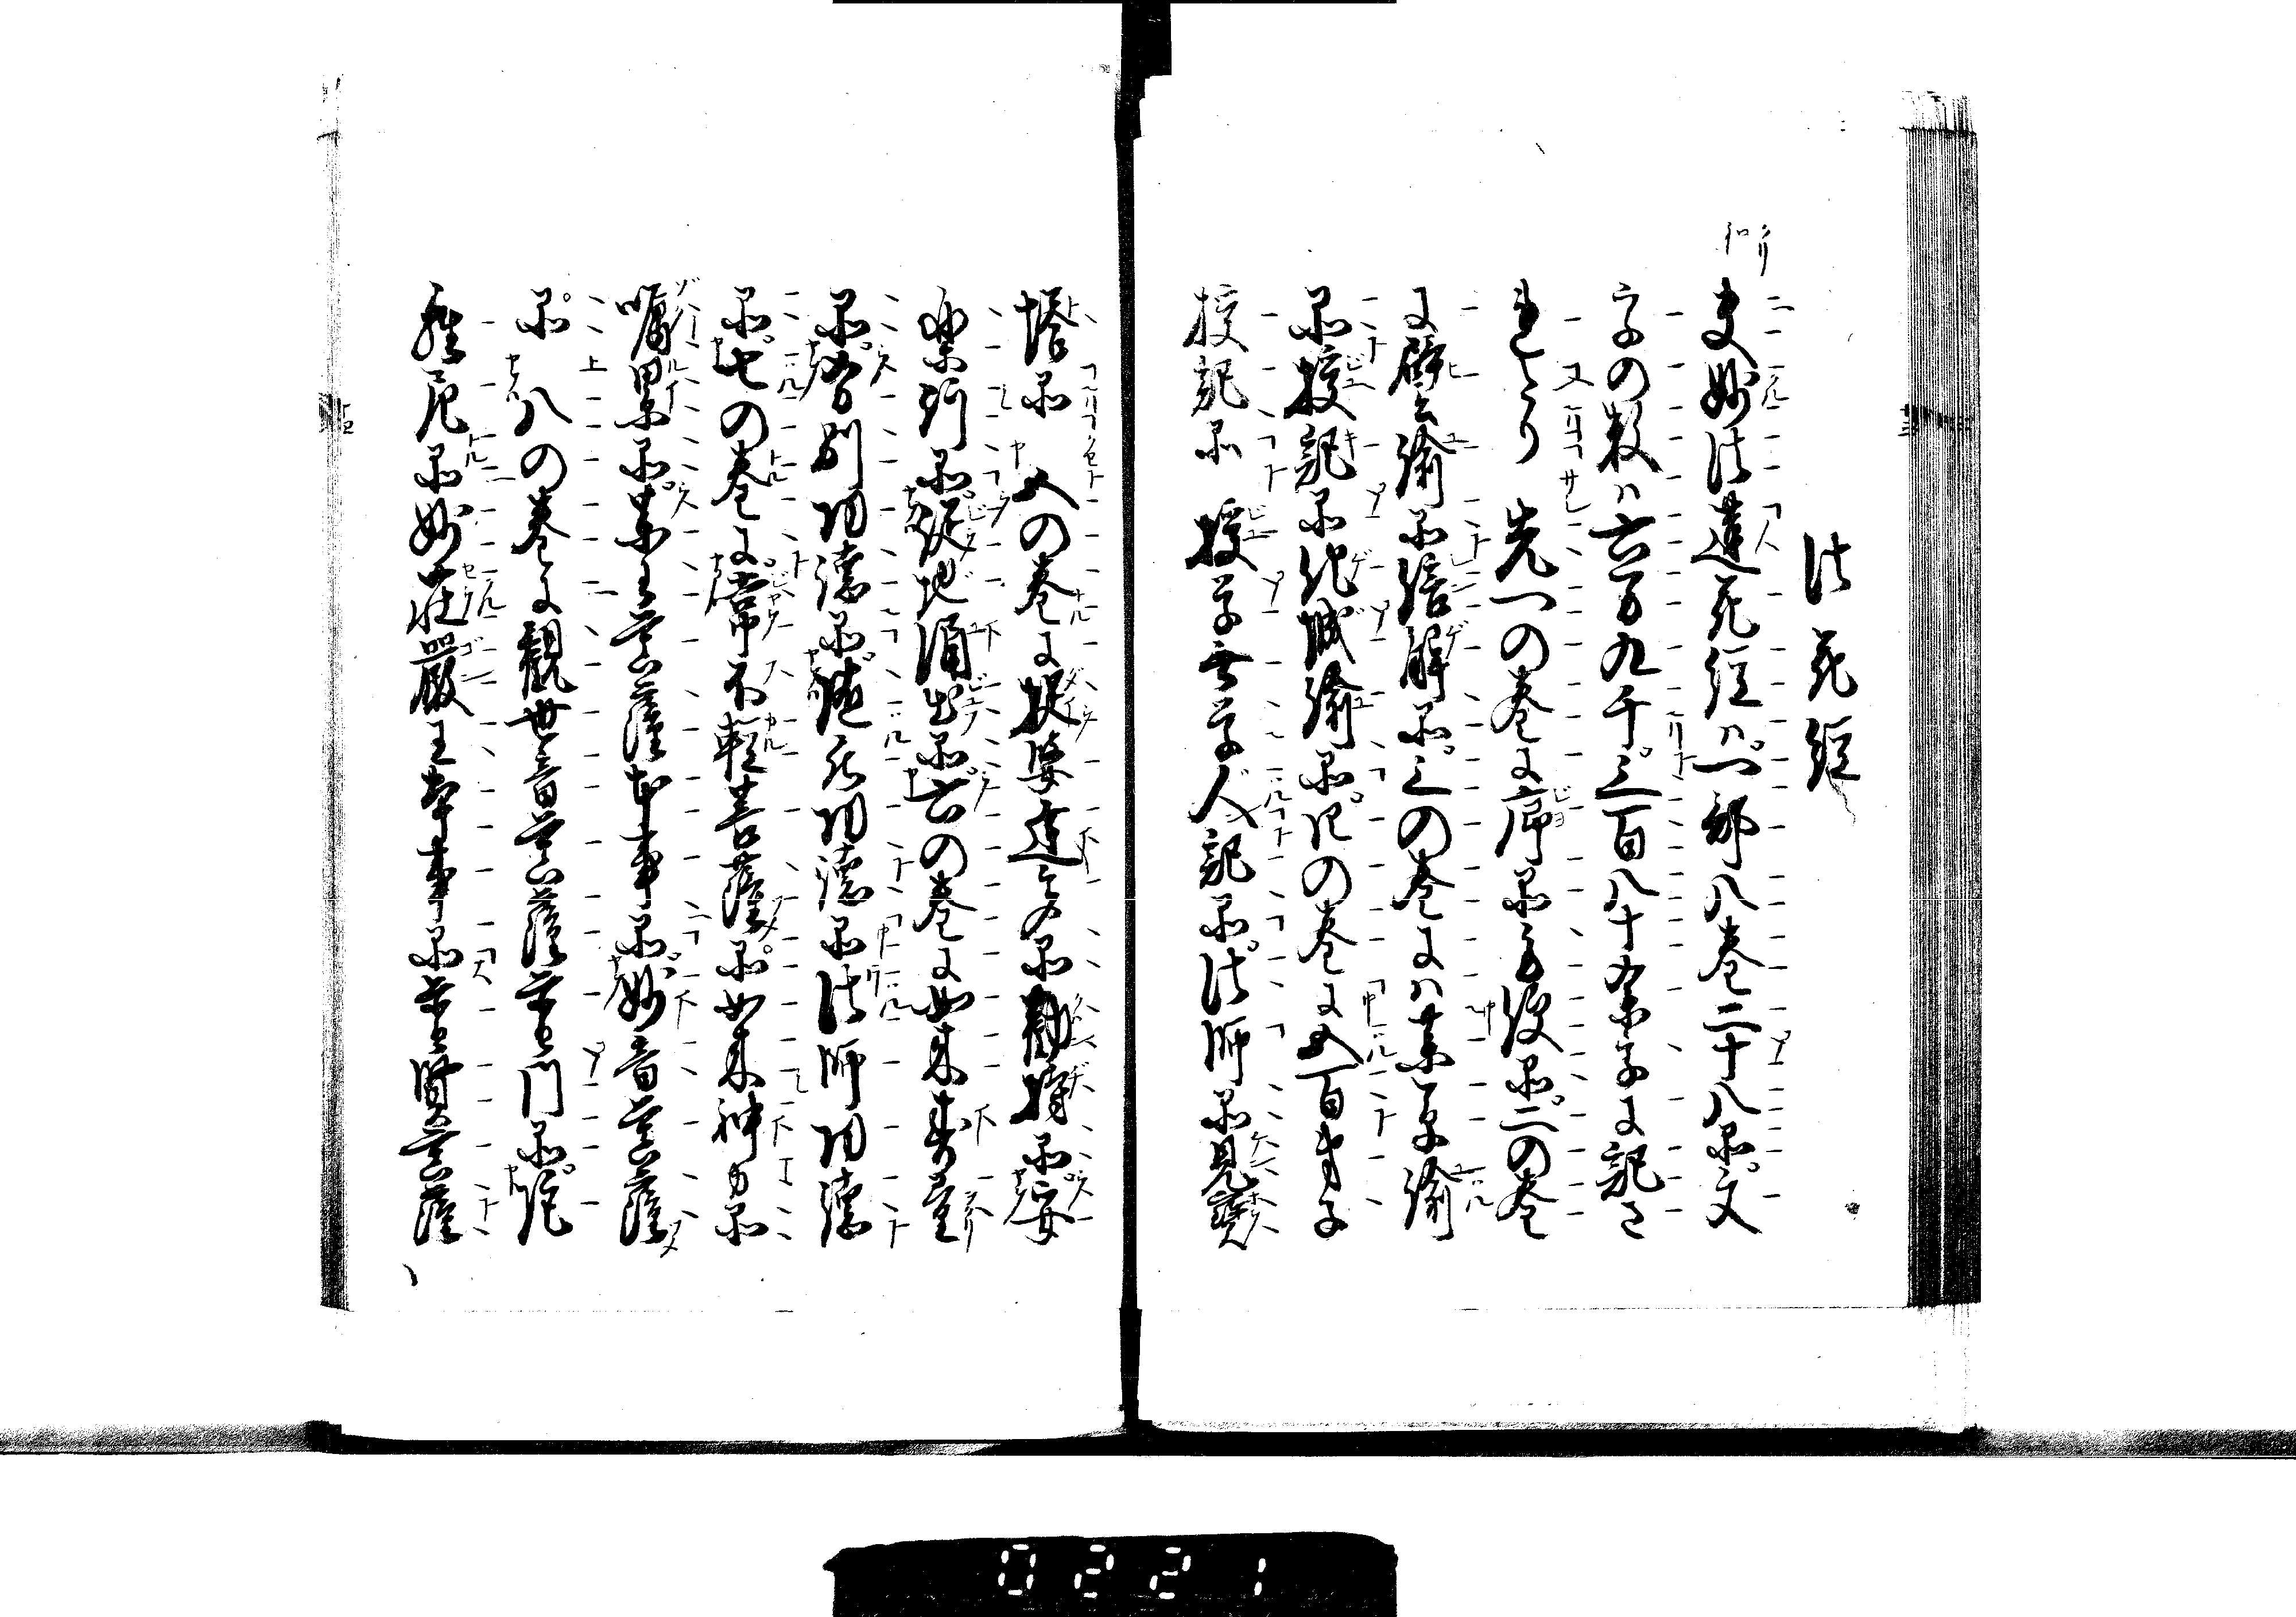 法花経
夫妙法蓮花経ハ一部八巻二十八品文
字の数ハ六万九千三百八十余字に記さ
れたり先一の巻に序品方便品二の巻
に譬喩品信解品三の巻にハ薬草喩
品授記品化城喩品四の巻に五百弟子
授記品授学無学人記品法師品見寳
塔品五の巻に提婆達多品勧持品安
楽行品従地涌出品六の巻に如来寿量
品分別功徳品随喜功徳品法師功徳
品七の巻に常不軽菩薩品如来神力品
嘱累品薬王菩薩本事品妙音菩薩
品八の巻に観世音菩薩普門品陀
羅尼品妙荘厳王本事品普賢菩薩
0221